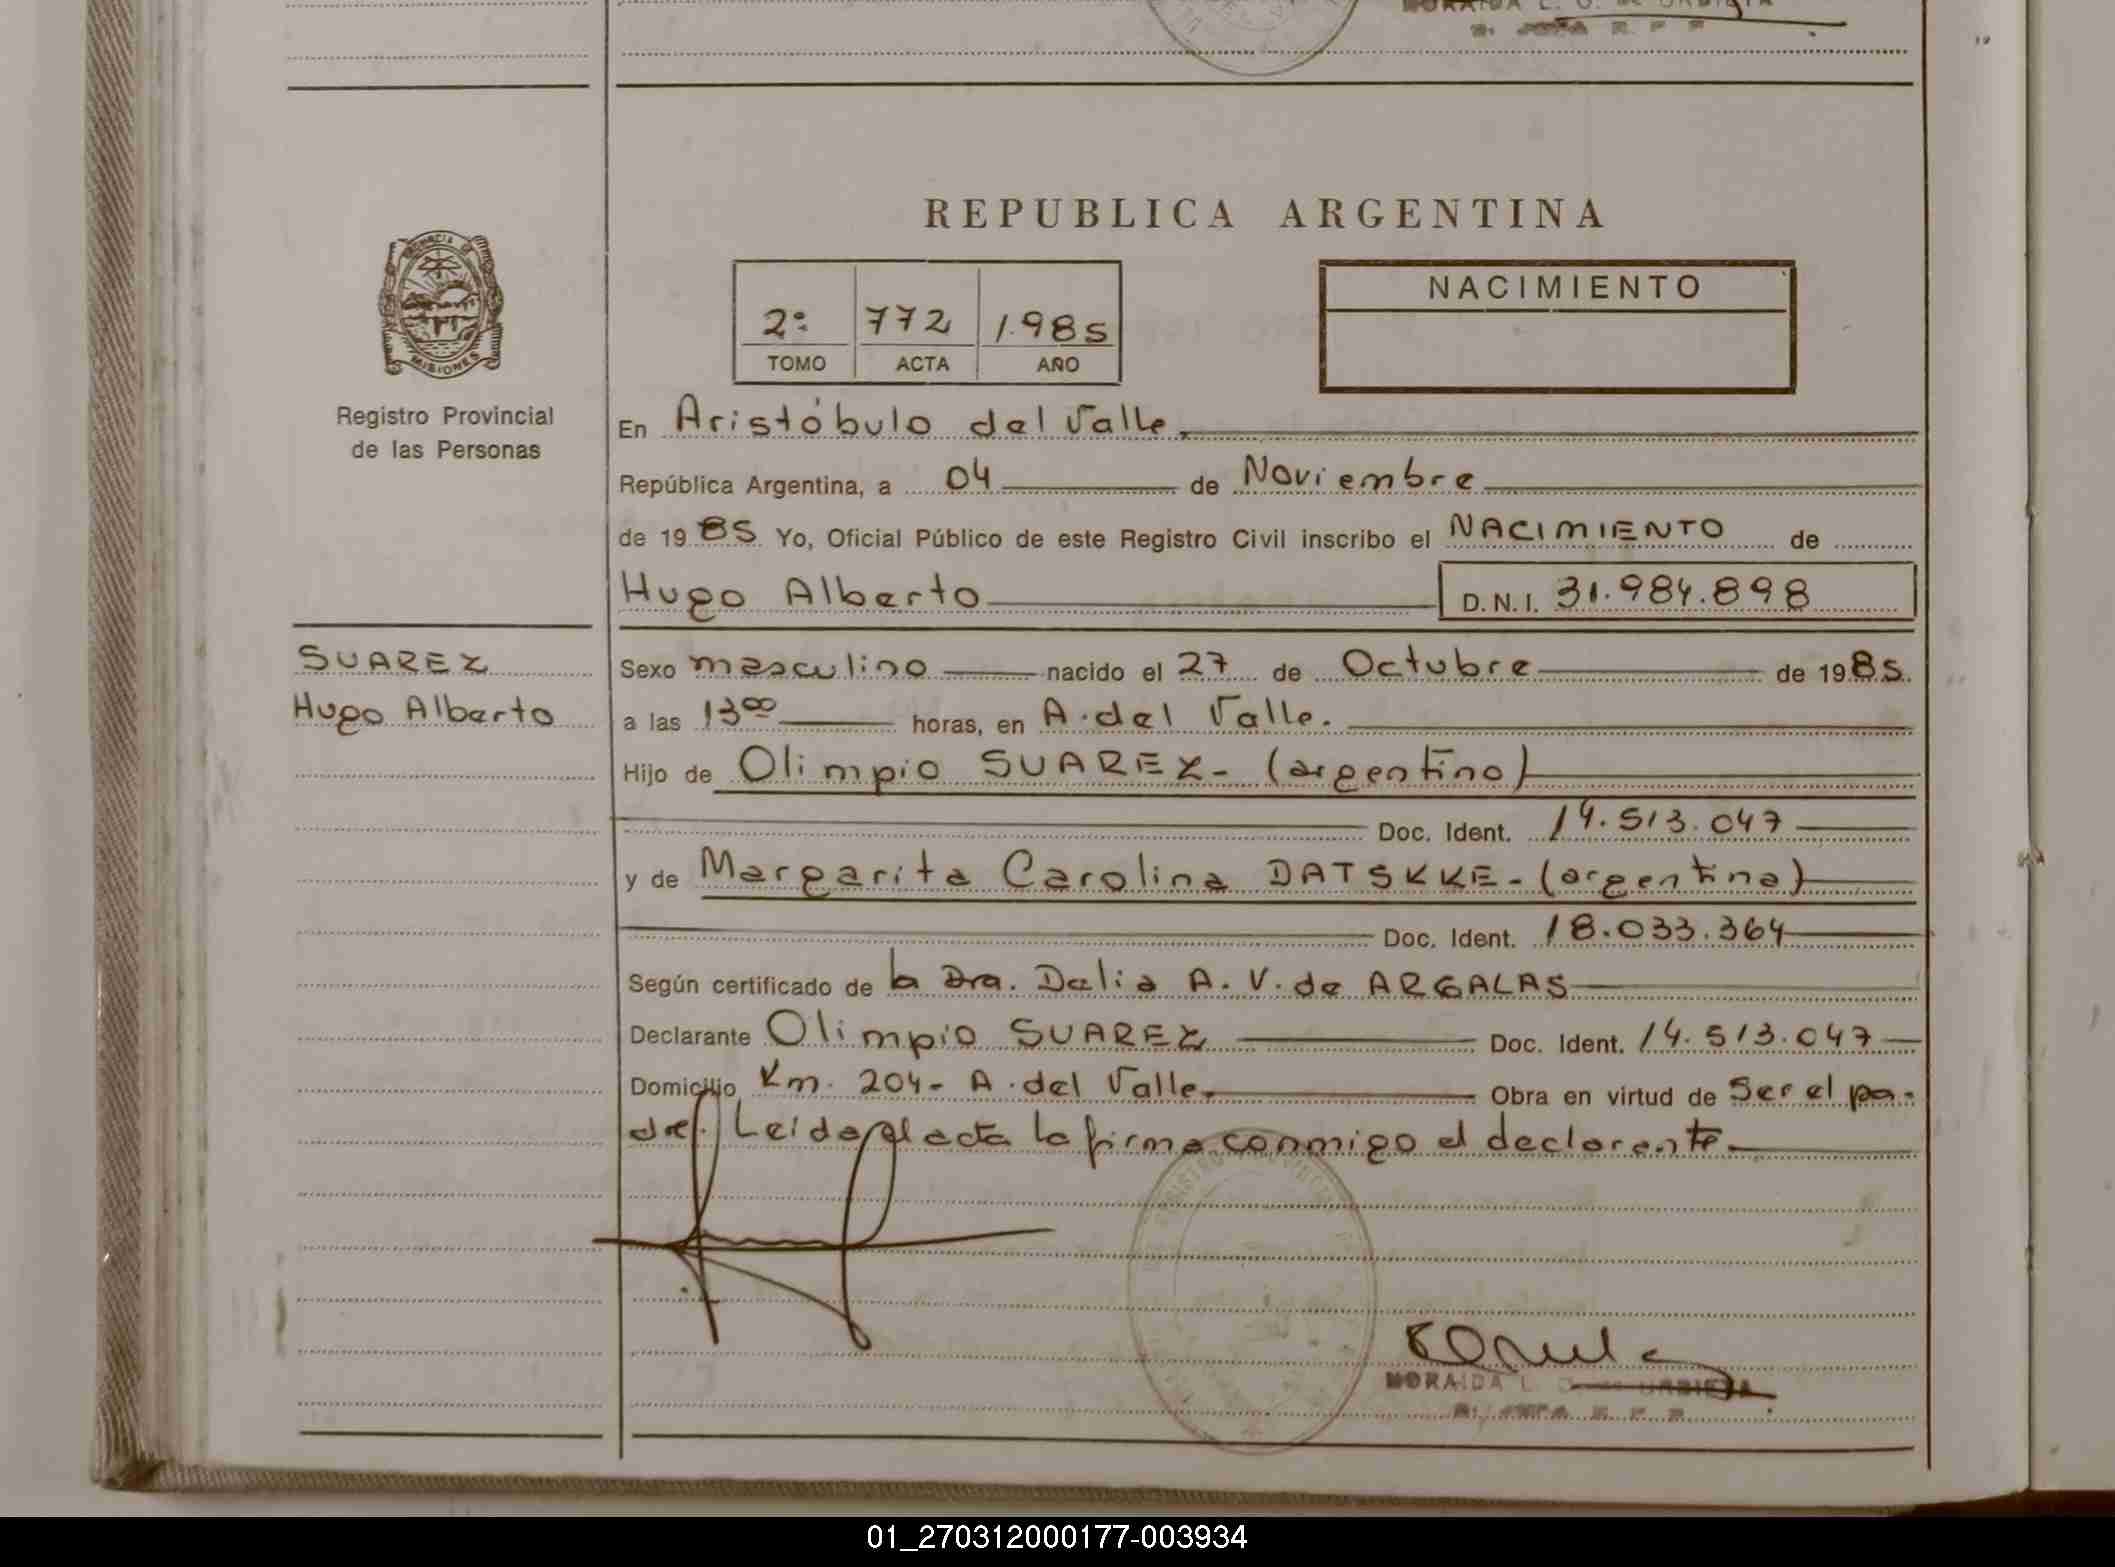 REPUBLICA ARGENTINA
PROVINCIA DE
MISIONES
Registro Provincial
de las Personas
2º 772 1.985
TOMO ACTA AÑO
NACIMIENTO
En Aristóbulo del Valle.
República Argentina, a 04 de Noviembre
de 1985 Yo, Oficial Público de este Registro Civil inscribo el NACIMIENTO de
Hugo Alberto D.N.I. 31.984.898
SUAREZ
Hugo Alberto
Sexo masculino nacido el 27 de Octubre de 1985.
a las 13 00 horas, en A. del Valle.
Hijo de Olimpio SUAREZ - (argentino)
Doc. Ident. 14.513.047
y de Margarita Carolina DATSKKE - (argentina)
Doc. Ident. 18.033.364
Según certificado de la Dra. Dalia A. V. de ARGALAS
Declarante Olimpio SUAREZ Doc. Ident. 14.513.047
Domicilio Km. 204 - A. del Valle. Obra en virtud de Ser el pa-
dre. Leida el acta la firma conmigo el declarante.
MORAIDA L. O. de URBIETA
01_270312000177-003934